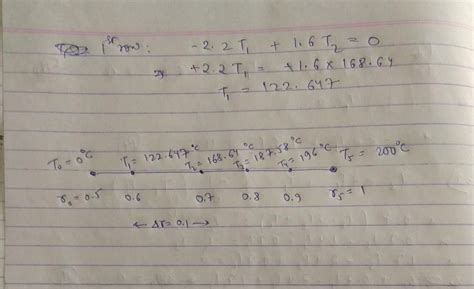 1st row: -2.2T₁ + 1.6T₂ = 0
+2.2T₁ = +1.6 × 168.64
T₁ = 122.647
T₀ = 0°C T₁ = 122.647°C T₂ = 168.64°C T₃ = 187.58°C T₄ = 196°C T₅ = 200°C
r₀ = 0.5 0.6 0.7 0.8 0.9 r₅ = 1
← Δr = 0.1 →